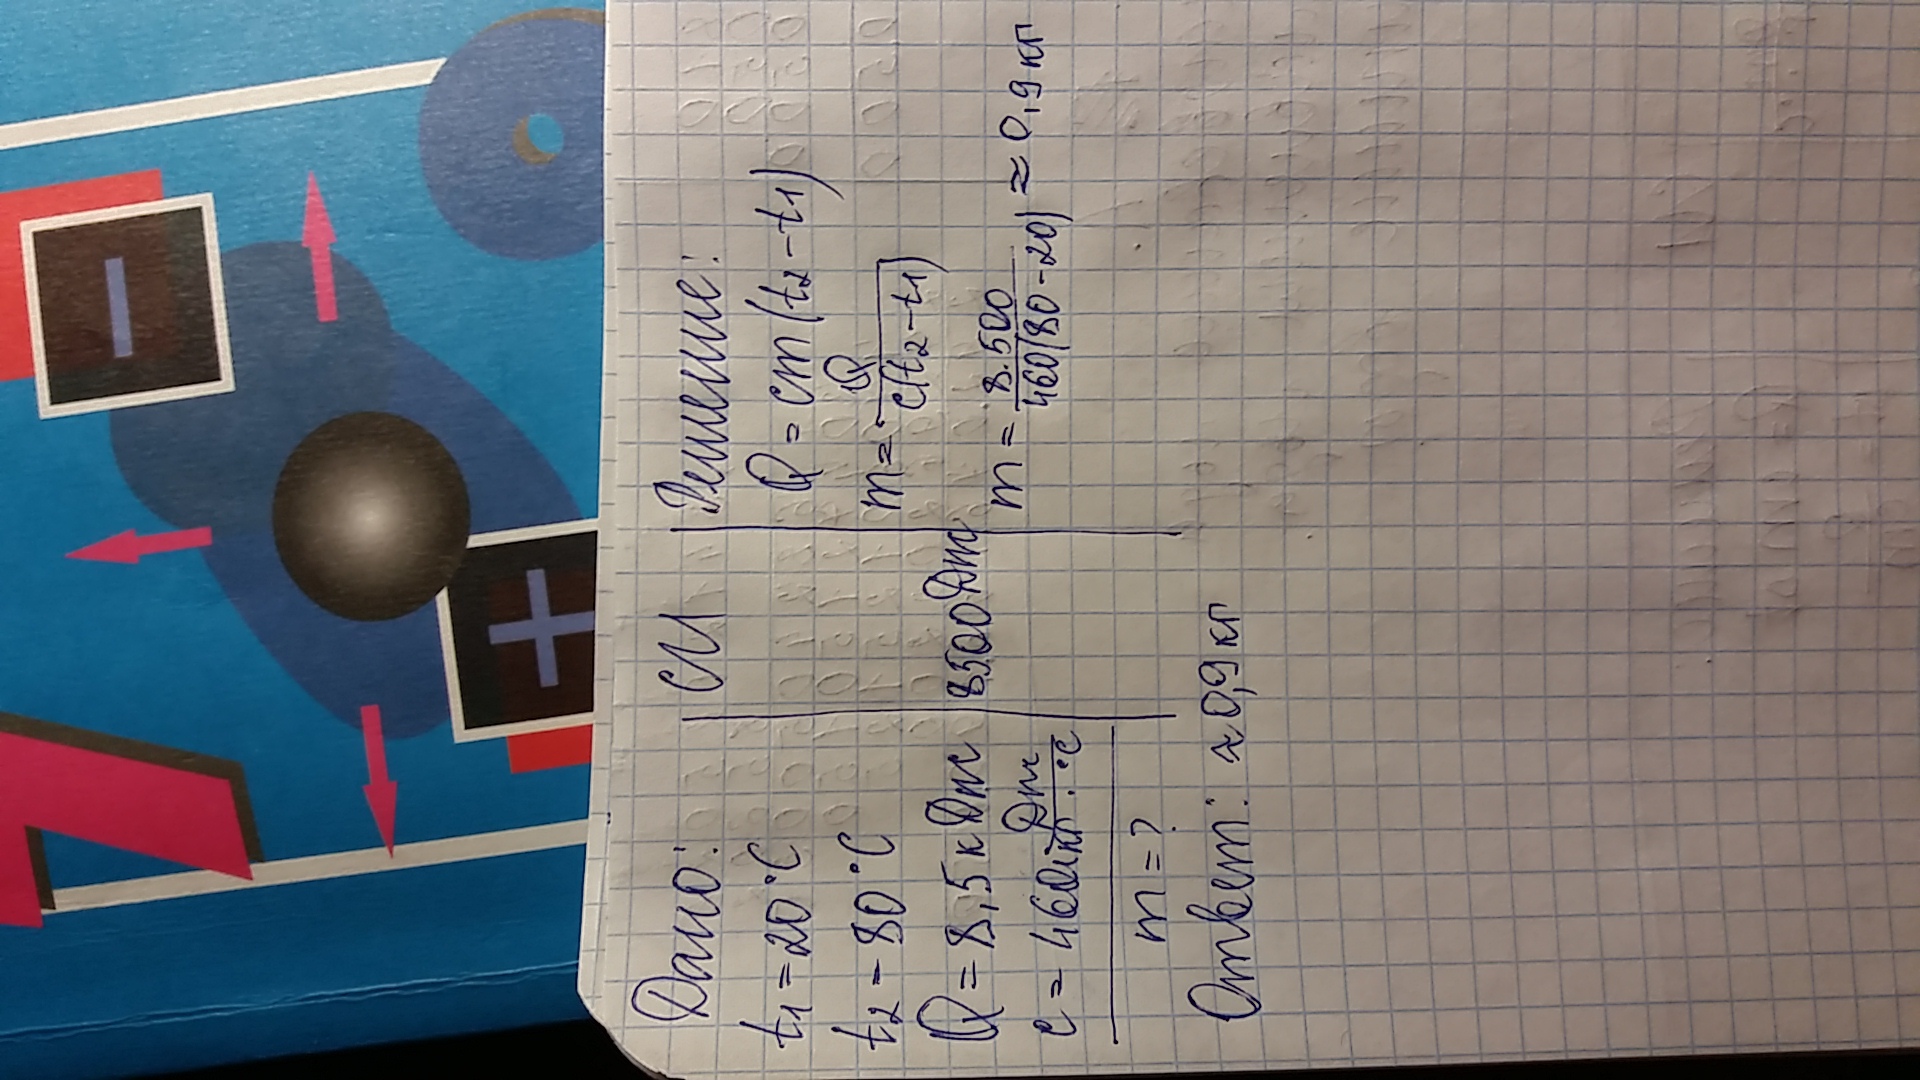 Дано:
t₁ = 20°C
t₂ = 80°C
Q = 8,5 кДж
c = 460 Дж/кг·°C
m = ?
СИ
8500 Дж
Решение:
Q = cm(t₂ - t₁)
m = Q/c(t₂ - t₁)
m = 8.500/460(80 - 20) ≈ 0,9 кг
Ответ: ≈ 0,9 кг